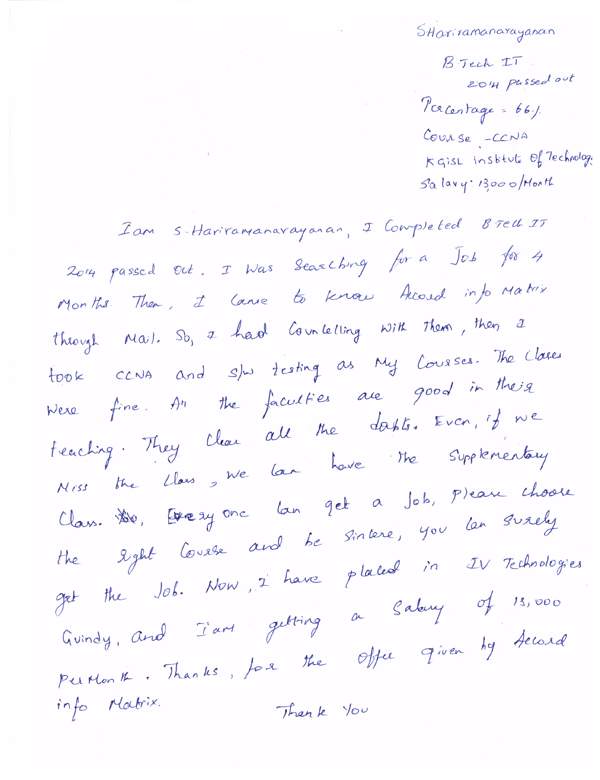 SHariramanarayanan
B Tech IT
2014 passed out
Percentage - 66%
Course - CCNA
KGISL Institute Of Technology.
Salary: 13,000/Month
I am S-Hariramanarayanan, I Completed B Tech IT
2014 passed out. I was Searching for a Job for 4
Months Then, I came to know Accord info Matrix
through Mail. So, I had Councelling with Them, then I
took CCNA and s/w testing as My Courses. The Classes
were fine. All the faculties are good in their
teaching. They Clear all the doubts. Even, if we
Miss the Class, we Can have the Supplementary
Class. So, Every one Can get a Job, Please choose
the right Course and be Sincere, you Can Surely
get the Job. Now, I have placed in IV Technologies
Guindy, and I am getting a Salary of 13,000
Per Month. Thanks, for the offer given by Accord
info Matrix.
Thank You